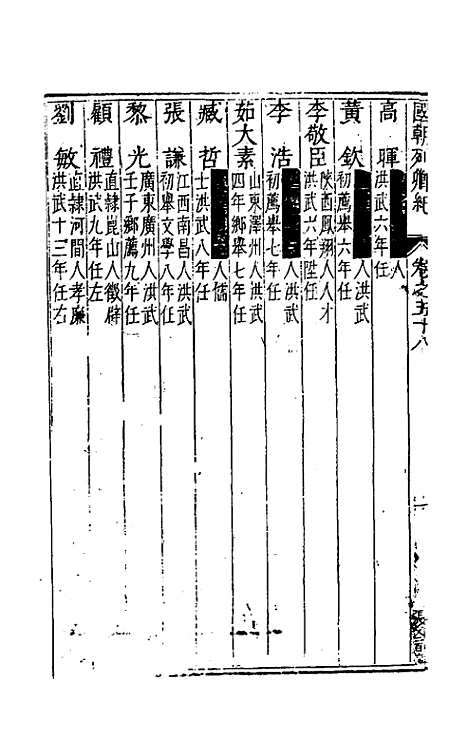 國朝列卿紀 卷之五十八
高暉 人
洪武六年任
黃欽 人洪武
初薦舉六年任
李敬臣 陝西鳳翔人人才
洪武六年陞任
李浩 人洪武
初薦舉七年任
茹大素 山東澤州人洪武
四年鄉舉七年任
臧哲 人儒
士洪武八年任
張謙 江西南昌人洪武
初舉文學八年任
黎光 廣東廣州人洪武
壬子鄉薦九年任
顧禮 直隸崑山人徵辟
洪武九年任左
劉敏 直隸河間人孝廉
洪武十三年任右